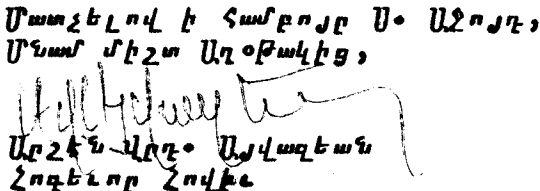 Մատչելով ի Համբոյր Ս. Աջոյդ,
Մնամ միշտ Աղօթակից,
Արշէն Վրդ. Այվազեան
Հոգեւոր Հովիւ